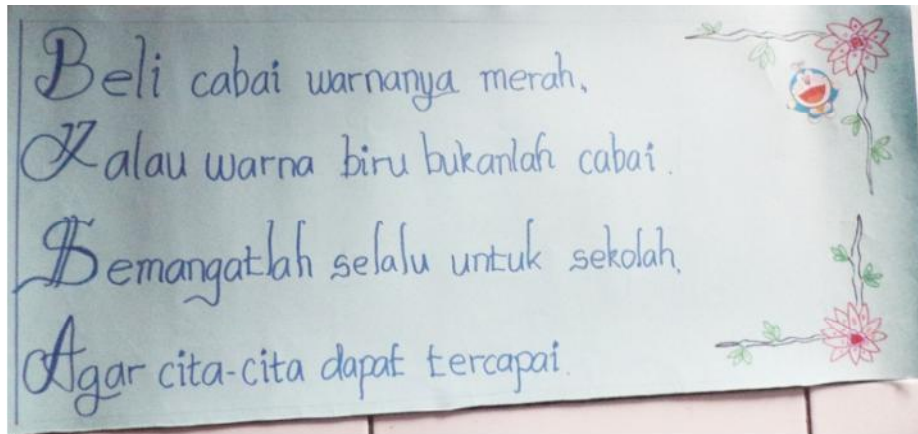 Beli cabai warnanya merah,
Kalau warna biru bukanlah cabai.
Semangatlah selalu untuk sekolah,
Agar cita-cita dapat tercapai.